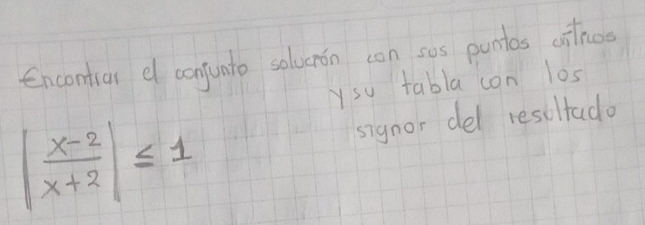 Encontrar el conjunto solución con sus puntos críticos
y su tabla con los
signos del resultado
|x-2 / x+2| ≤ 1